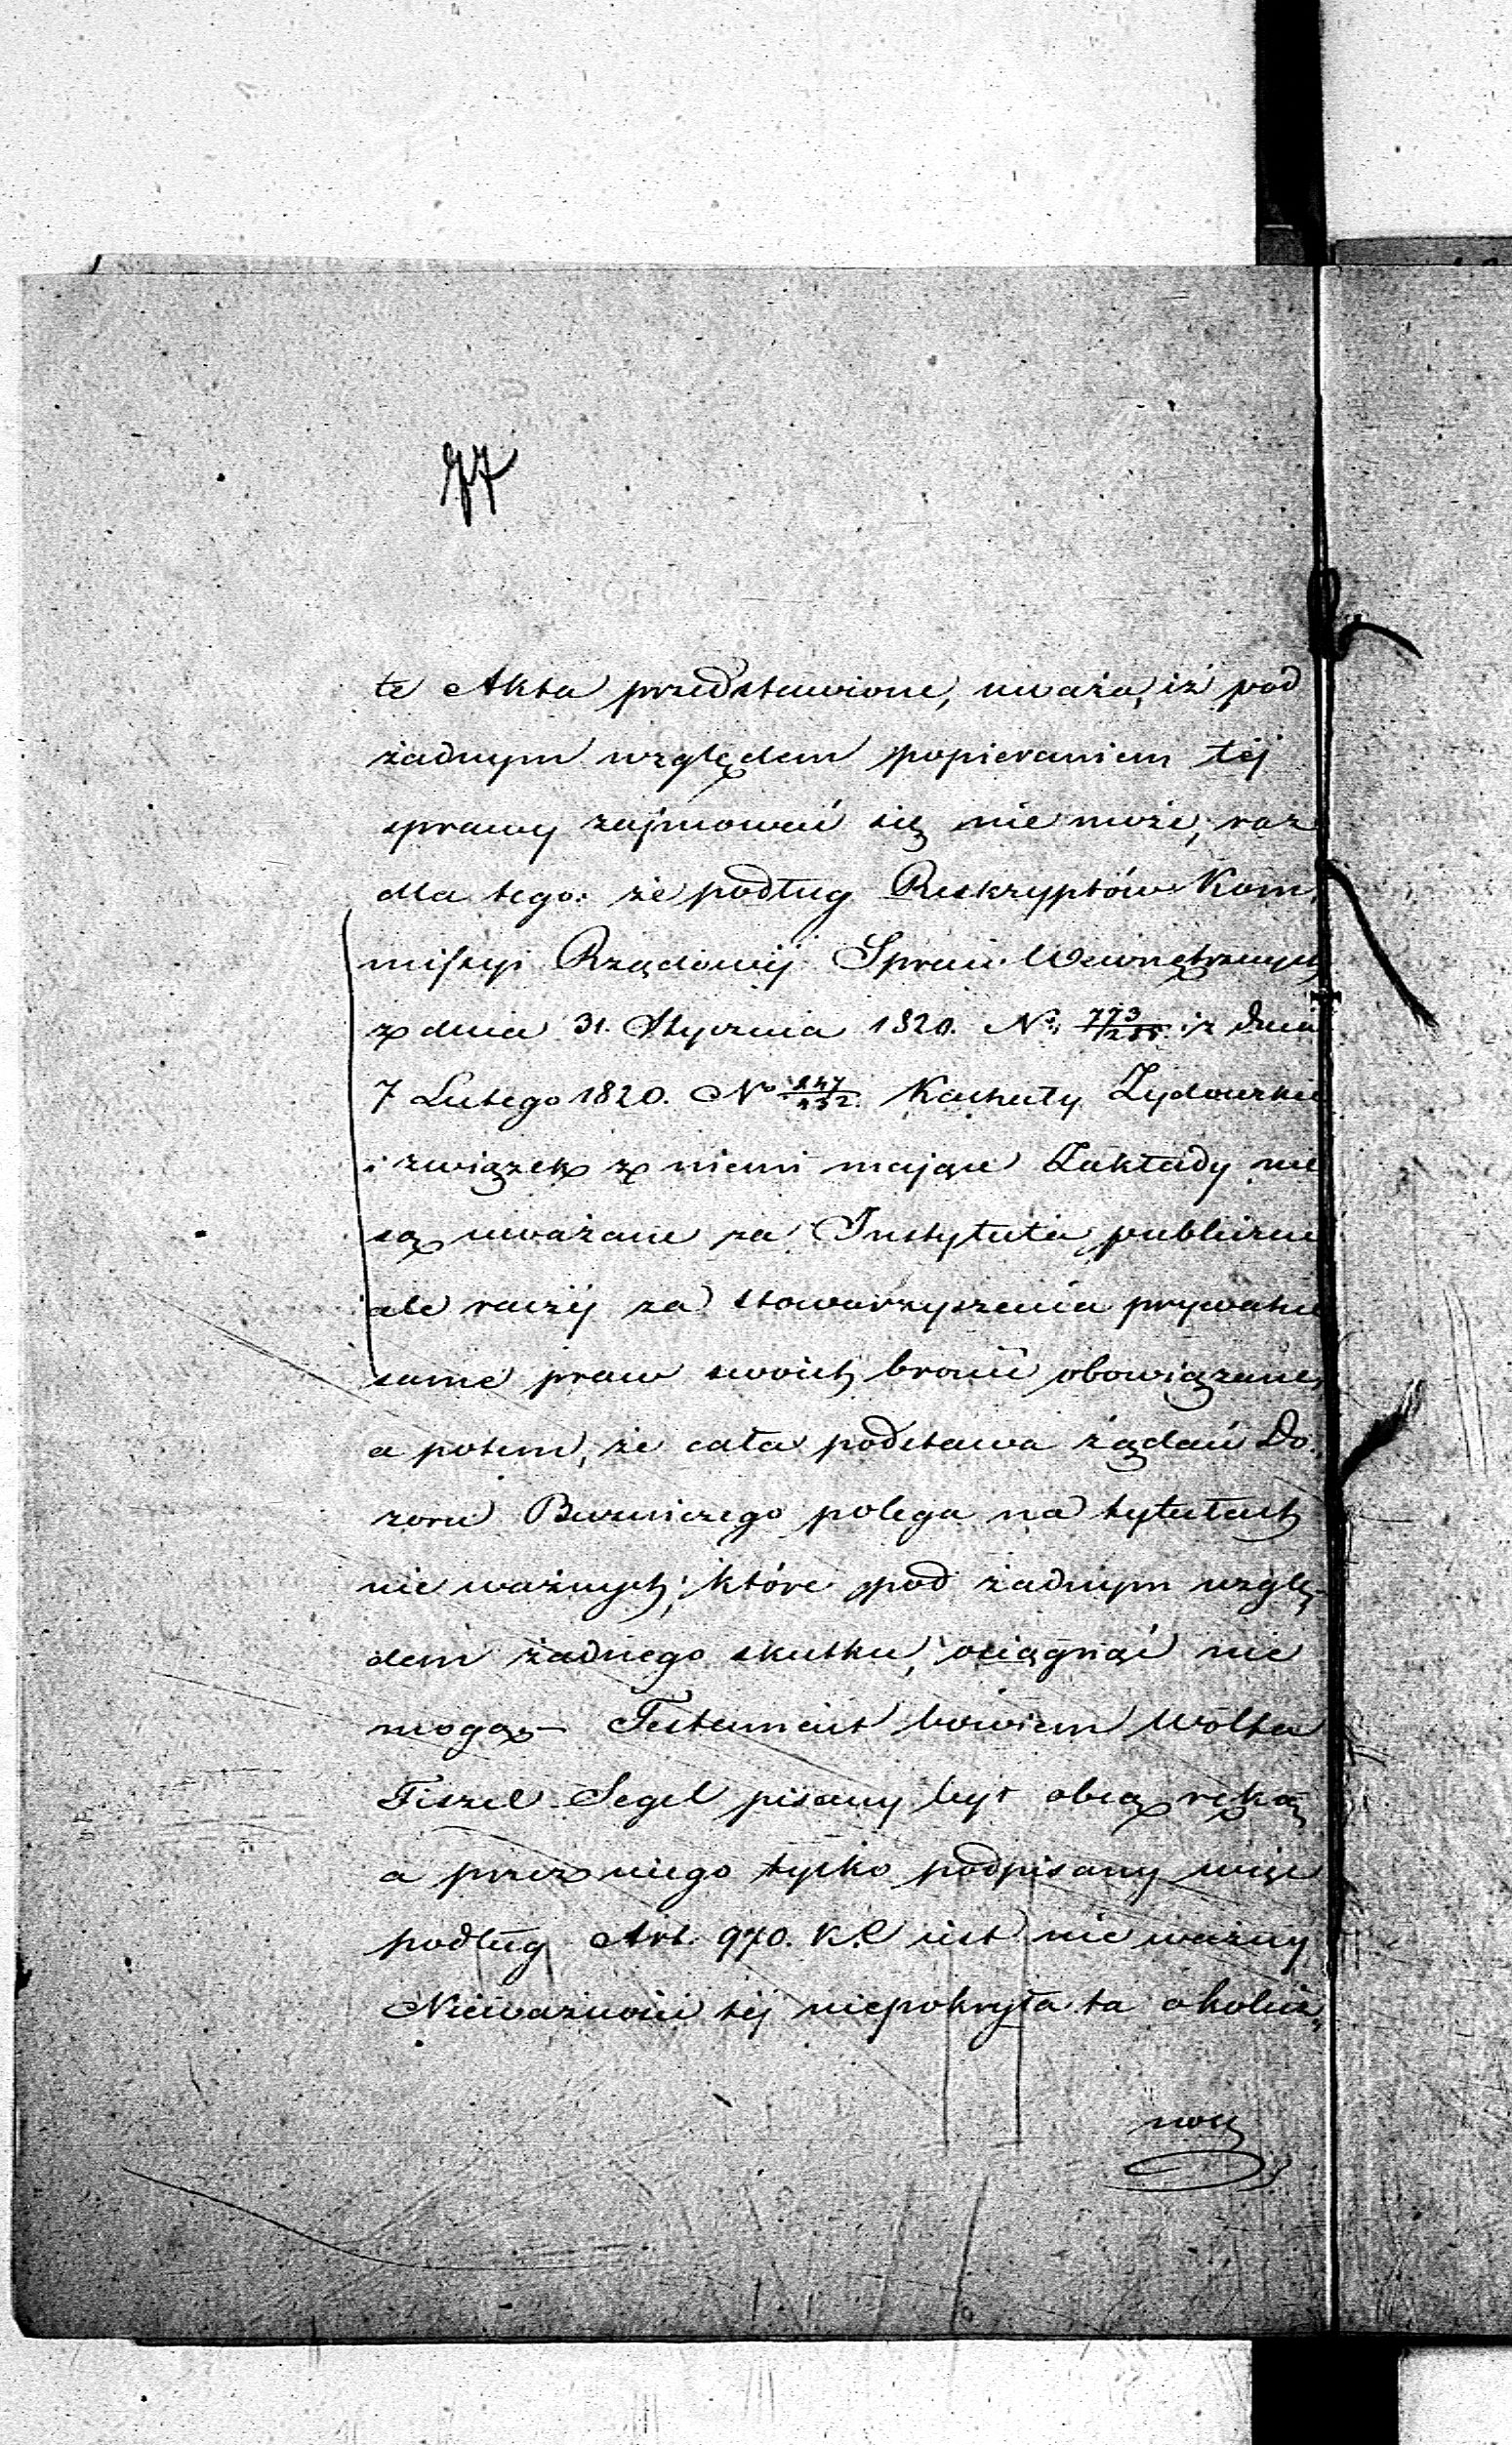 77
te Akta przedstawione, uważa, iż pod
żadnym względem popieraniem téj
sprawy zajmować się nie może; raz
dla tego: że podług Reskryptów Kom,
missyi Rządowéj Spraw Wewnętrznych
z dnia 31. Stycznia 1820. No. 773/255. i z dnia
7 Lutego 1820. No 247/452. Kachały Żydowskie
i związek z niemi mające Zakłady nie
są uważane za Instytuta publiczne
ale raczéj za stowarzyszenia prywatne
same praw swoich bronić obowiązane,
a potem, że cała podstawa żądań Do,
zoru Bużniczego polega na tytułach
nie ważnych, które pod żadnym wzglę-
dem żadnego skutku, osiągnąć nie
mogą – Testament bowiem Wolka
Fiszel Segel pisany był obcą ręką
a przez niego tylko podpisany więc
podług Art. 970. K.C jest nie ważny
Nieważności téj niepokryła ta okolicz,
ność